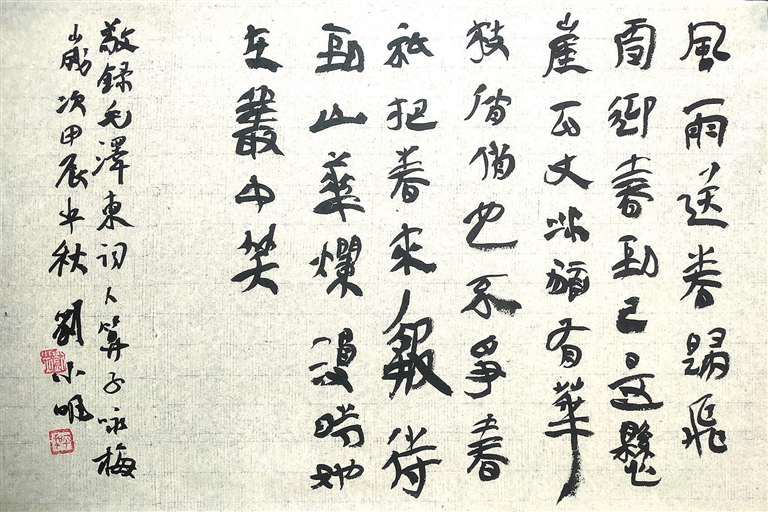 風雨送春歸飛
雪迎春到已是懸
崖百丈冰猶有華
枝俏俏也不爭春
祇把春來報待
到山華爛漫時她
在叢中笑
敬錄毛澤東詞卜算子咏梅
歲次甲辰中秋 劉小